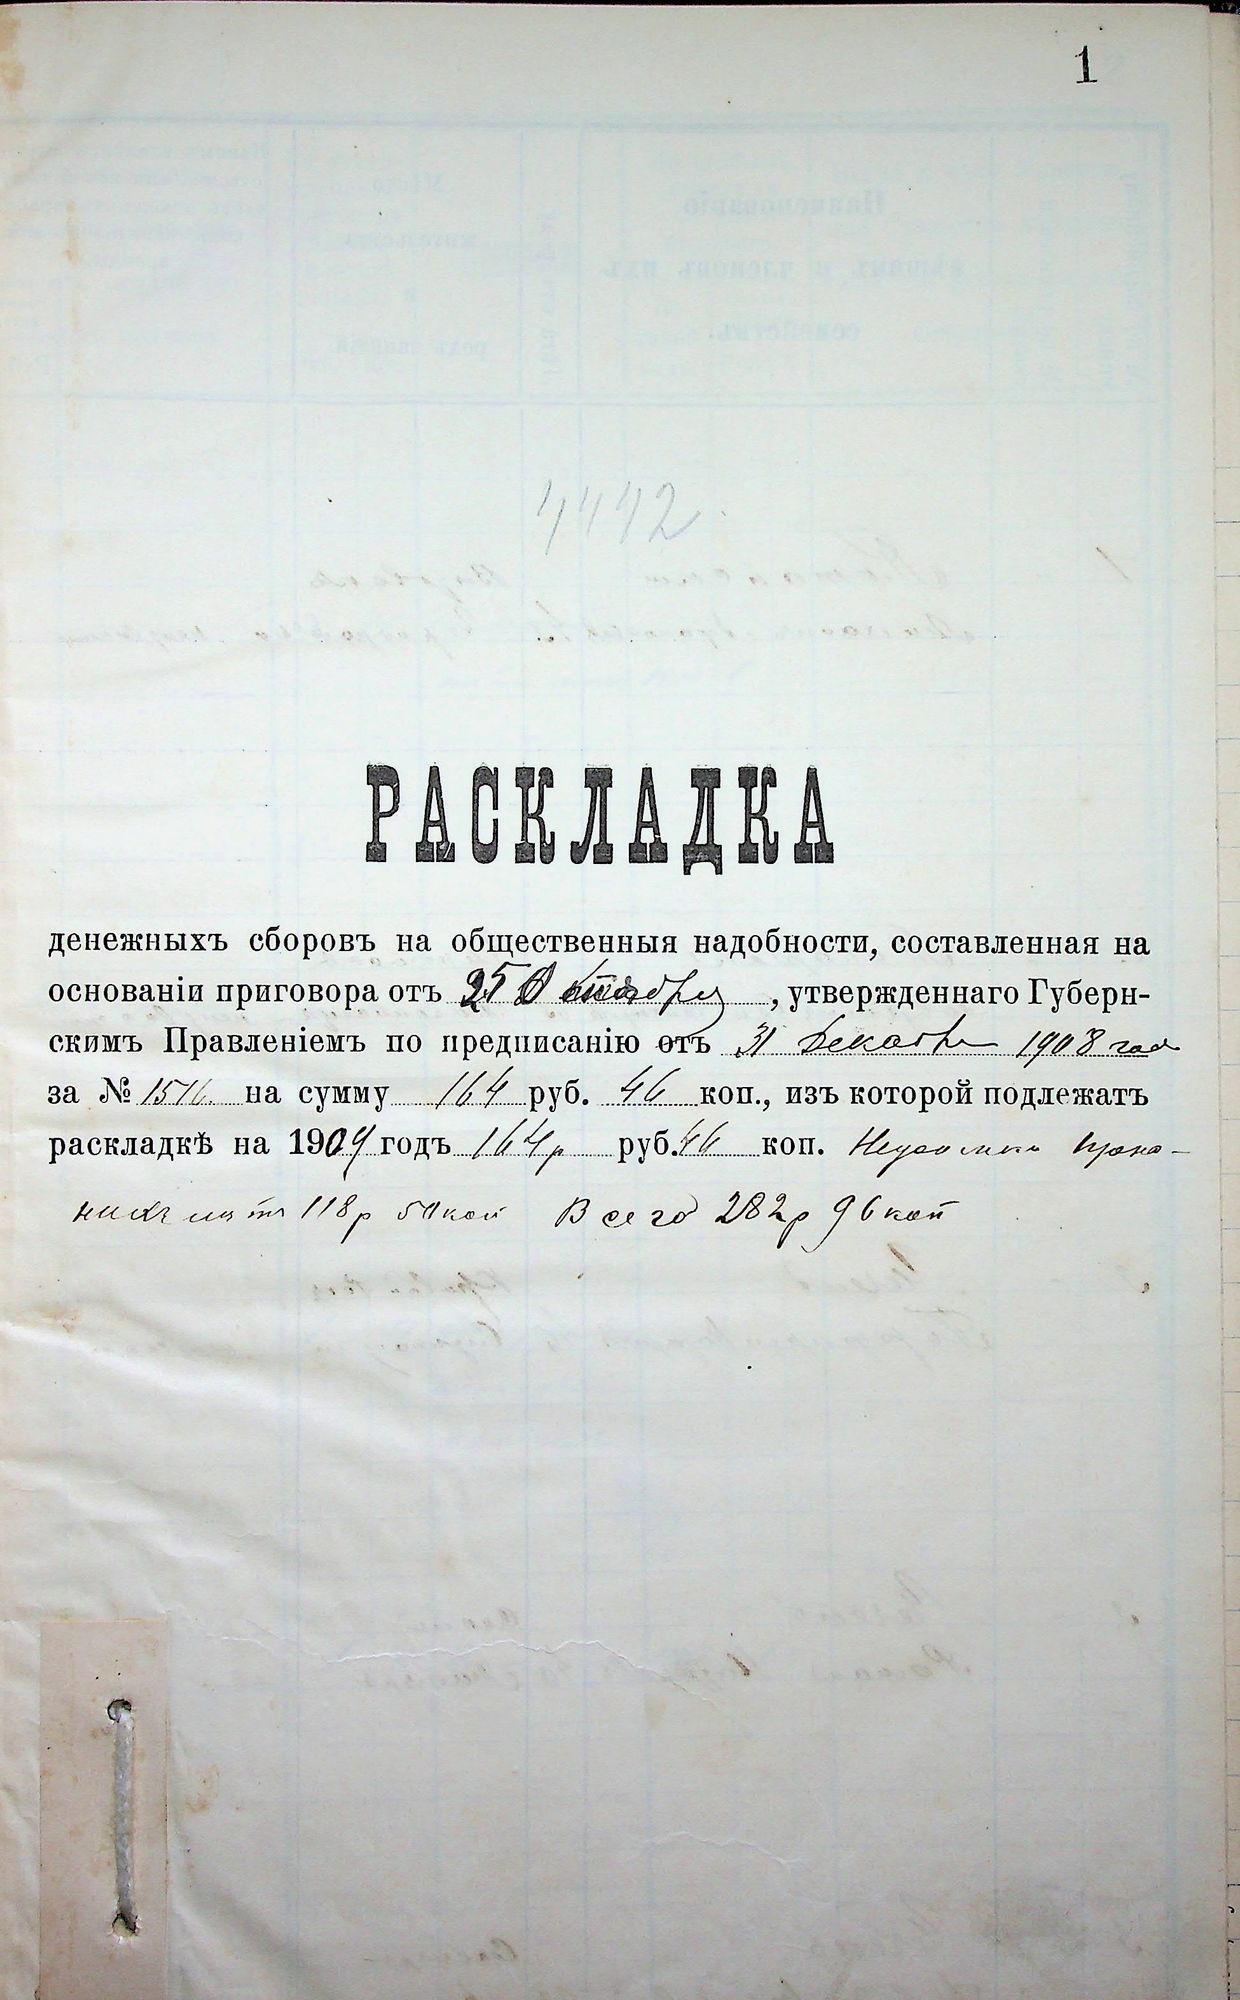 1
4442
РАСКЛАДКА
денежныхъ сборовъ на общественныя надобности, составленная на
основаніи приговора отъ 25 Октября, утвержденнаго Губерн-
скимъ Правленіемъ по предписанію отъ 31 Декабря 1908 года
за № 1516. на сумму 164 руб. 46 коп., изъ которой подлежатъ
раскладкѣ на 1909 годъ 164р руб. 46 коп. Недоимки
лѣтъ 118р 50 коп Всего 282р 96 коп